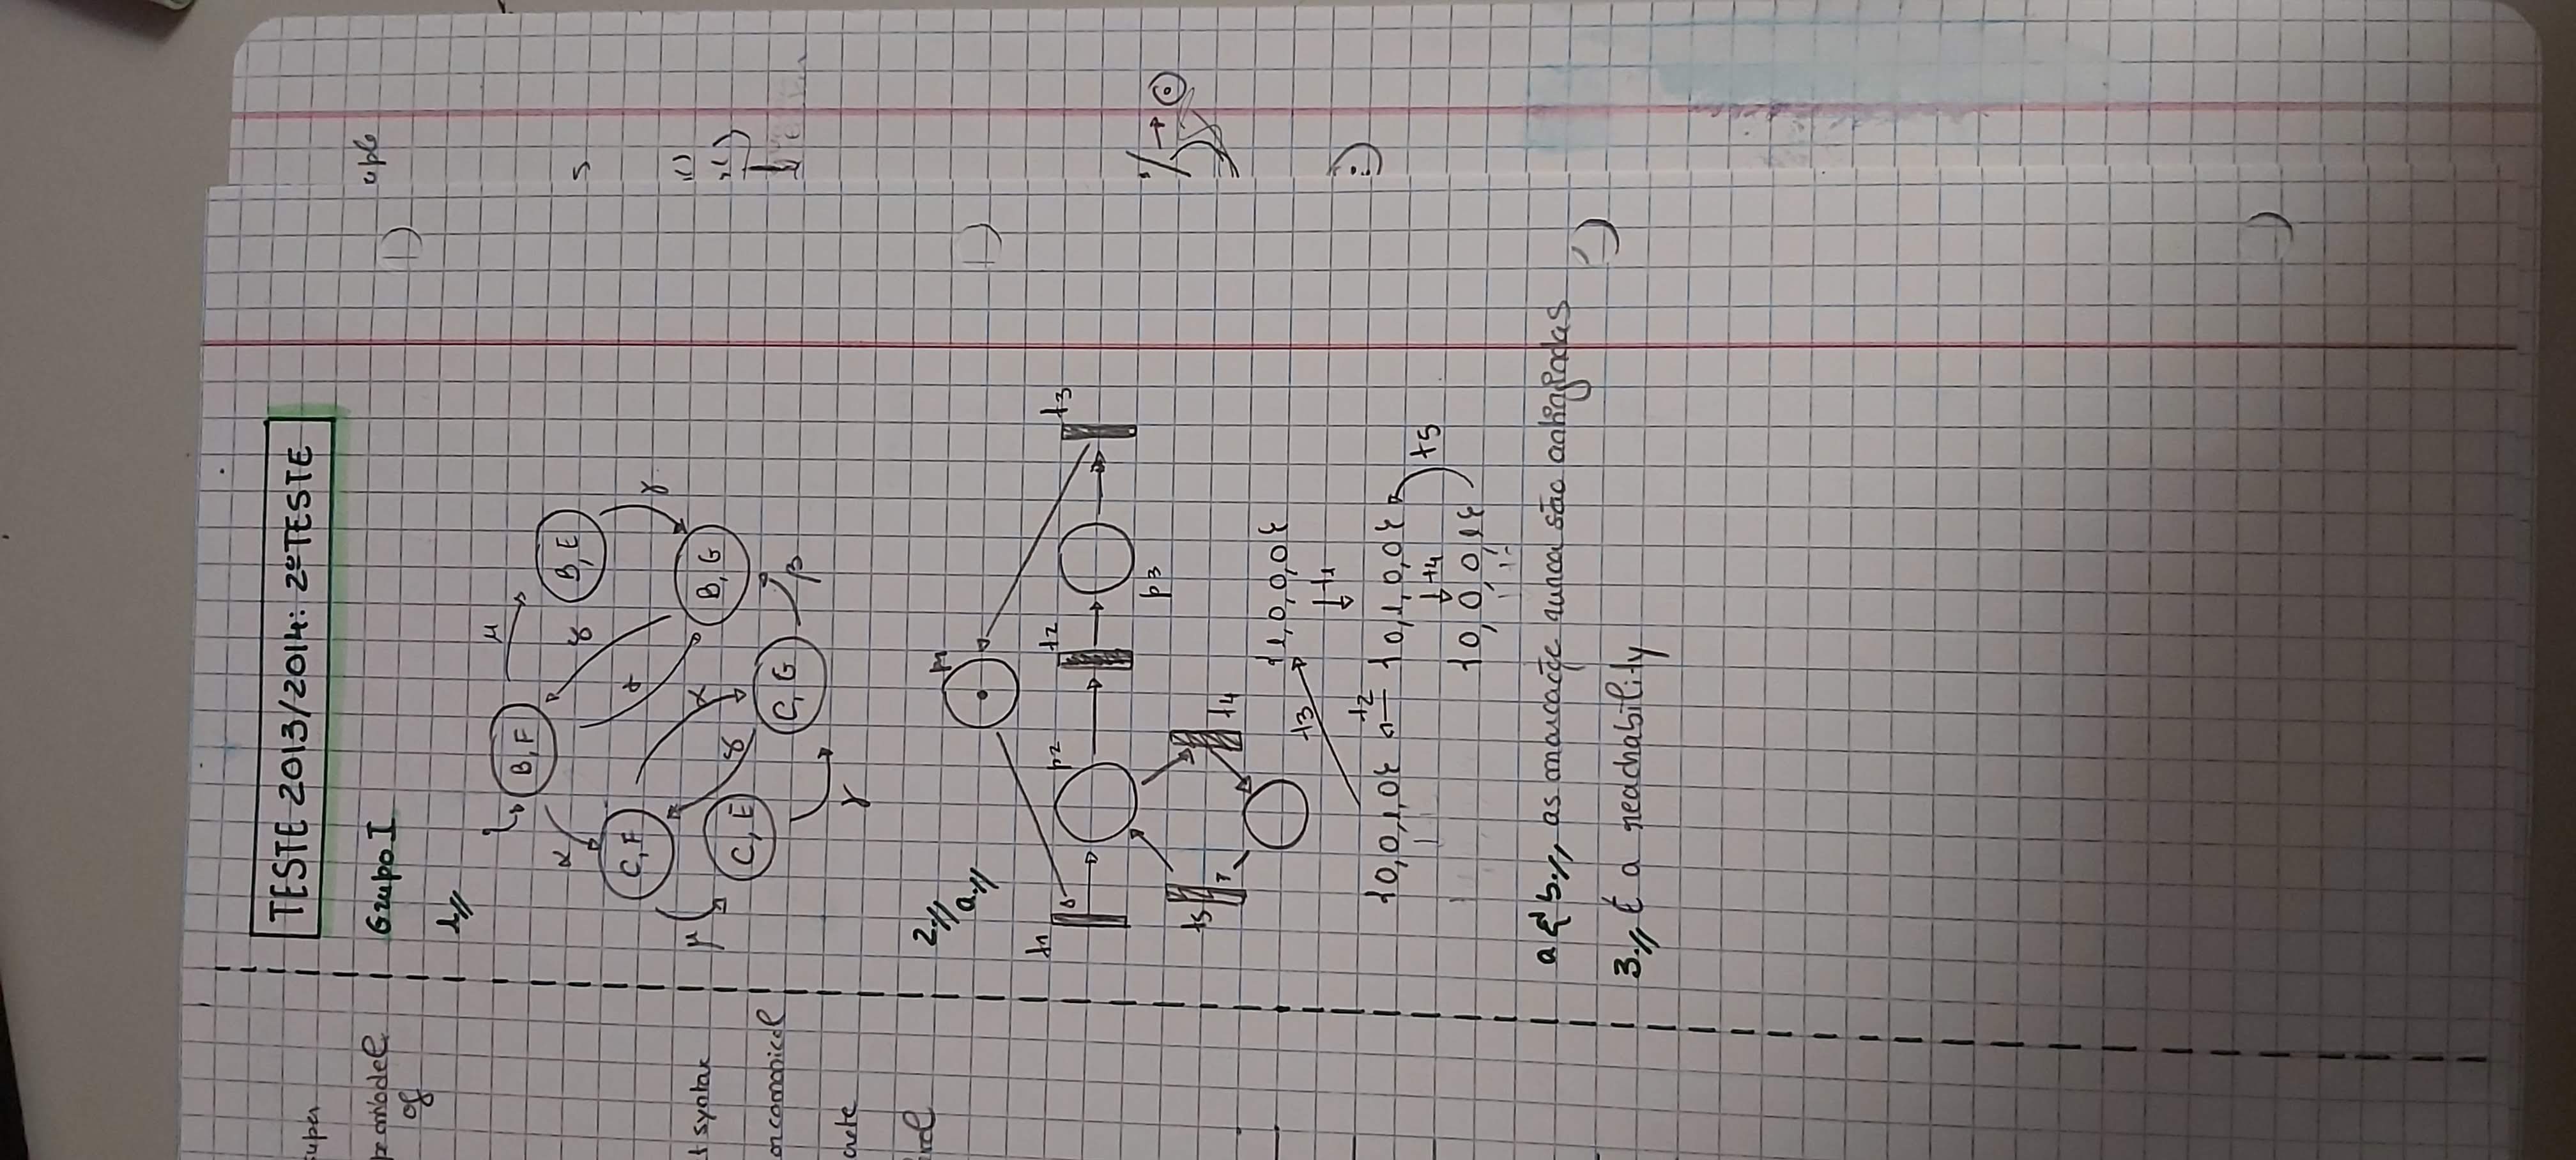 TESTE 2013/2014: 2º TESTE
Grupo I
1.//
B,F
μ
B,E
γ
B,G
α
C,F
C,G
β
μ
C,E
γ
2.// a.//
p1
t1
p2
t2
p3
t3
t4
t5
{1,0,0,0}
↓ t1
t3
{0,0,1,0} t2 {0,1,0,0}
↓ t4
t5
{0,0,0,1}
a e b.// as marcação nunca são atingidas
3.// É a reachability
super
of
t syntax